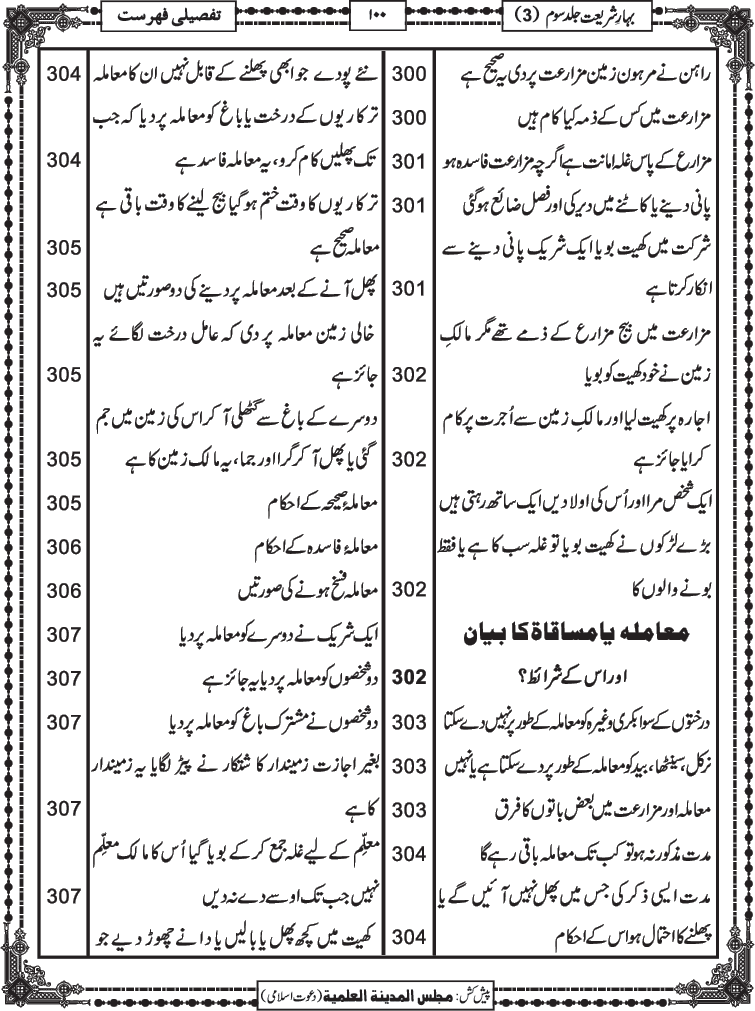 بہارِ شریعت جلد سوم (3)
۱۰۰
تفصیلی فہرست
راہن نے مرہون زمین مزارعت پر دی یہ صحیح ہے 300
مزارعت میں کس کے ذمہ کیا کام ہیں 300
مزارع کے پاس غلہ امانت ہے اگرچہ مزارعت فاسدہ ہو 301
پانی دینے یا کاٹنے میں دیر کی اور فصل ضائع ہوگئی 301
شرکت میں کھیت بویا ایک شریک پانی دینے سے
انکار کرتا ہے 301
مزارعت میں بیج مزارع کے ذمے تھے مگر مالکِ
زمین نے خود کھیت کو بویا 302
اجارہ پر کھیت لیا اور مالکِ زمین سے اُجرت پر کام
کرایا جائز ہے 302
ایک شخص مرا اور اُس کی اولادیں ایک ساتھ رہتی ہیں
بڑے لڑکوں نے کھیت بویا تو غلہ سب کا ہے یا فقط
بونے والوں کا 302
معاملہ یا مساقاۃ کا بیان
اور اس کے شرائط؟ 302
درختوں کے سوا بکری وغیرہ کو معاملہ کے طور پر نہیں دے سکتا 303
نرکل، سینٹھا، بید کو معاملہ کے طور پر دے سکتا ہے یا نہیں 303
معاملہ اور مزارعت میں بعض باتوں کا فرق 303
مدت مذکور نہ ہو تو کب تک معاملہ باقی رہے گا 304
مدت ایسی ذکر کی جس میں پھل نہیں آئیں گے یا
پھلنے کا احتمال ہو اس کے احکام 304
نئے پودے جو ابھی پھلنے کے قابل نہیں ان کا معاملہ 304
ترکاریوں کے درخت یا باغ کو معاملہ پر دیا کہ جب
تک پھلیں کام کرو، یہ معاملہ فاسد ہے 304
ترکاریوں کا وقت ختم ہوگیا بیج لینے کا وقت باقی ہے
معاملہ صحیح ہے 305
پھل آنے کے بعد معاملہ پر دینے کی دو صورتیں ہیں 305
خالی زمین معاملہ پر دی کہ عامل درخت لگائے یہ
جائز ہے 305
دوسرے کے باغ سے گٹھلی آکر اس کی زمین میں جم
گئی یا پھل آکر گرا اور جما، یہ مالک زمین کا ہے 305
معاملۂ صحیحہ کے احکام 305
معاملۂ فاسدہ کے احکام 306
معاملہ فسخ ہونے کی صورتیں 306
ایک شریک نے دوسرے کو معاملہ پر دیا 307
دو شخصوں کو معاملہ پر دیا یہ جائز ہے 307
دو شخصوں نے مشترک باغ کو معاملہ پر دیا 307
بغیر اجازت زمیندار کاشتکار نے پیڑ لگایا یہ زمیندار
کا ہے 307
معلّم کے لیے غلہ جمع کرکے بویا گیا اُس کا مالک معلّم
نہیں جب تک اوسے دے نہ دیں 307
کھیت میں کچھ پھل یا بالیں یا دانے چھوڑ دیے جو
پیش کش: مجلس المدینۃ العلمیۃ (دعوت اسلامی)